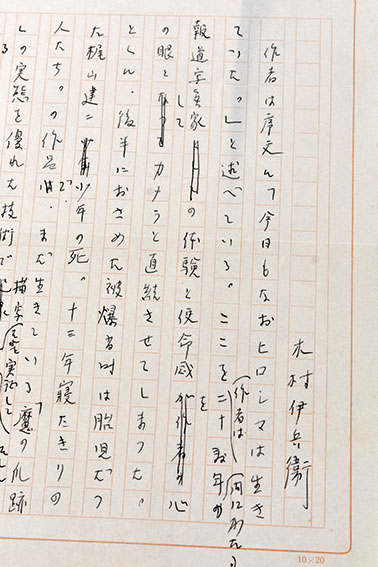 木村伊兵衛
作者は序文に「今日もなおヒロシマは生き
ていた。」と述べている。ここを二十数年の
(作者は (間にわたる
報道写真家としての体験と使命感を
の眼と カメラと直結させてしまった。
とくに、後半におさめた被爆者 は胎児だっ
た梶山建二少年の死。十三年寝たきりの
人たち。の作品で、まだ生きている「魔の爪跡
」の実態を優れた技術で描写
10×20